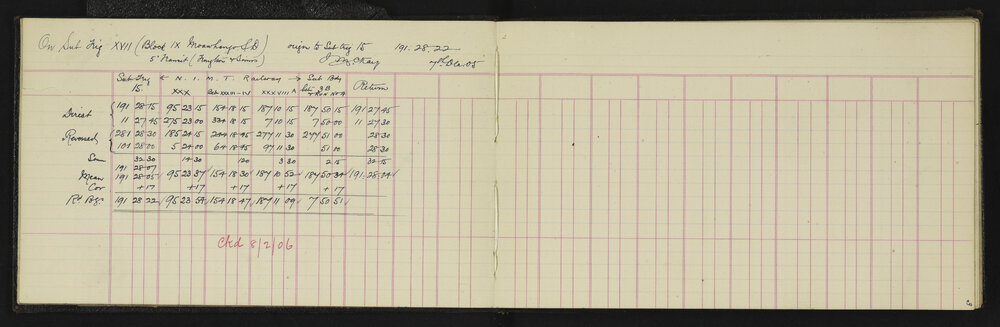 On Sub Trig XVII (Block IX Moawhango S.D) origin to Sub Trig 15 191.28.22
5" Transit (Troughton & Simms) J McKay 7th Dec. 05
Sub Trig ← N. I. M. T. Railway → Sub Bdy Return
15. XXX XXXVIII A
Direct 191 28 15 95 23 15 154 18 15 187 10 15 187 50 15 191 27 45
11 27 45 275 23 00 334 18 15 7 10 15 7 50 00 11 27 30
Reversed 281 28 30 185 24 15 244 18 45 277 11 30 277 51 00 28 30
101 28 00 5 24 00 64 18 45 97 11 30 51 00 28 30
Sum 32 30 14 30 120 3 30 2 15 32 15
191 28 07
Mean 191 28 05 95 23 37 154 18 30 187 10 52 187 50 34 191 28 04
Cor +17 +17 +17 +17 +17
Rd Bgs 191 28 22 95 23 54 154 18 47 187 11 09 7 50 51
Ckd 8/2/06